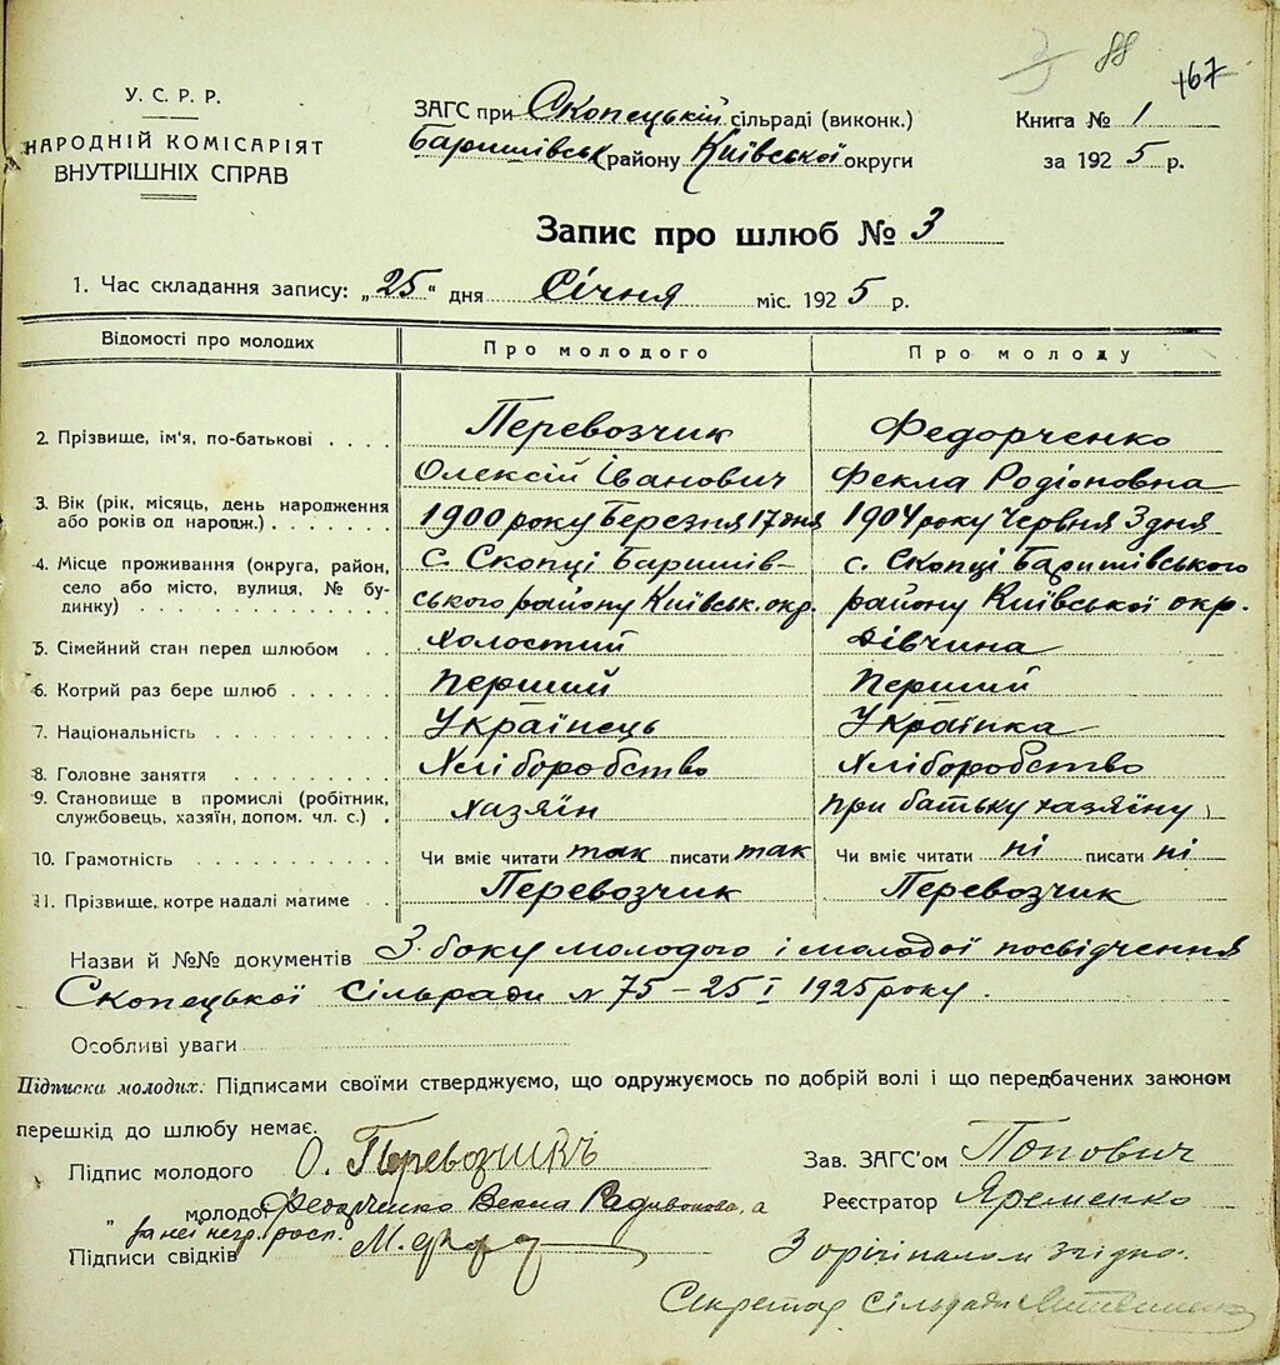 3 88
167
У. С. Р. Р.
НАРОДНІЙ КОМІСАРІЯТ
ВНУТРІШНІХ СПРАВ
ЗАГС при Скопецькій сільраді (виконк.)
Баришівськ району Київської округи
Книга № 1
за 1925 р.
Запис про шлюб № 3
1. Час складання запису: „25“ дня Січня міс. 1925 р.
Відомості про молодих Про молодого Про молоду
2. Прізвище, ім'я, по-батькові . . . . Перевозчик Федорченко
Олексій Іванович Фекла Родіоновна
3. Вік (рік, місяць, день народження
або років од народж.) . . . . . . . 1900 року Березня 17 дня 1904 року Червня 3 дня
4. Місце проживання (округа, район, с. Скопці Баришів- с. Скопці Баришівського
село або місто, вулиця, № бу-
динку) . . . . . . . . . . . . ського району Київськ. окр. району Київської окр.
5. Сімейний стан перед шлюбом . . Холостий Дівчина
6. Котрий раз бере шлюб . . . . . . Перший Перший
7. Національність . . . . . . . . . Українець Українка
8. Головне заняття . . . . . . . . Хліборобство Хліборобство
9. Становище в промислі (робітник,
службовець, хазяїн, допом. чл. с.) . хазяїн при батьку хазяїну
10. Грамотність . . . . . . . . . . Чи вміє читати так писати так Чи вміє читати ні писати ні
11. Прізвище, котре надалі матиме . . Перевозчик Перевозчик
Назви й №№ документів З боку молодого і молодої посвідчення
Скопецької Сільради № 75 – 25 I 1925 року.
Особливі уваги
Підписка молодих: Підписами своїми стверджуємо, що одружуємось по добрій волі і що передбачених законом
перешкід до шлюбу немає.
Підпис молодого О. Перевозчикъ
Зав. ЗАГС'ом Попович
„ молодої Федорченко Родивонова, а
Реєстратор Яременко
за неї негр. росп.
Підписи свідків М.
З оригіналом згідно:
Секретар Сільради